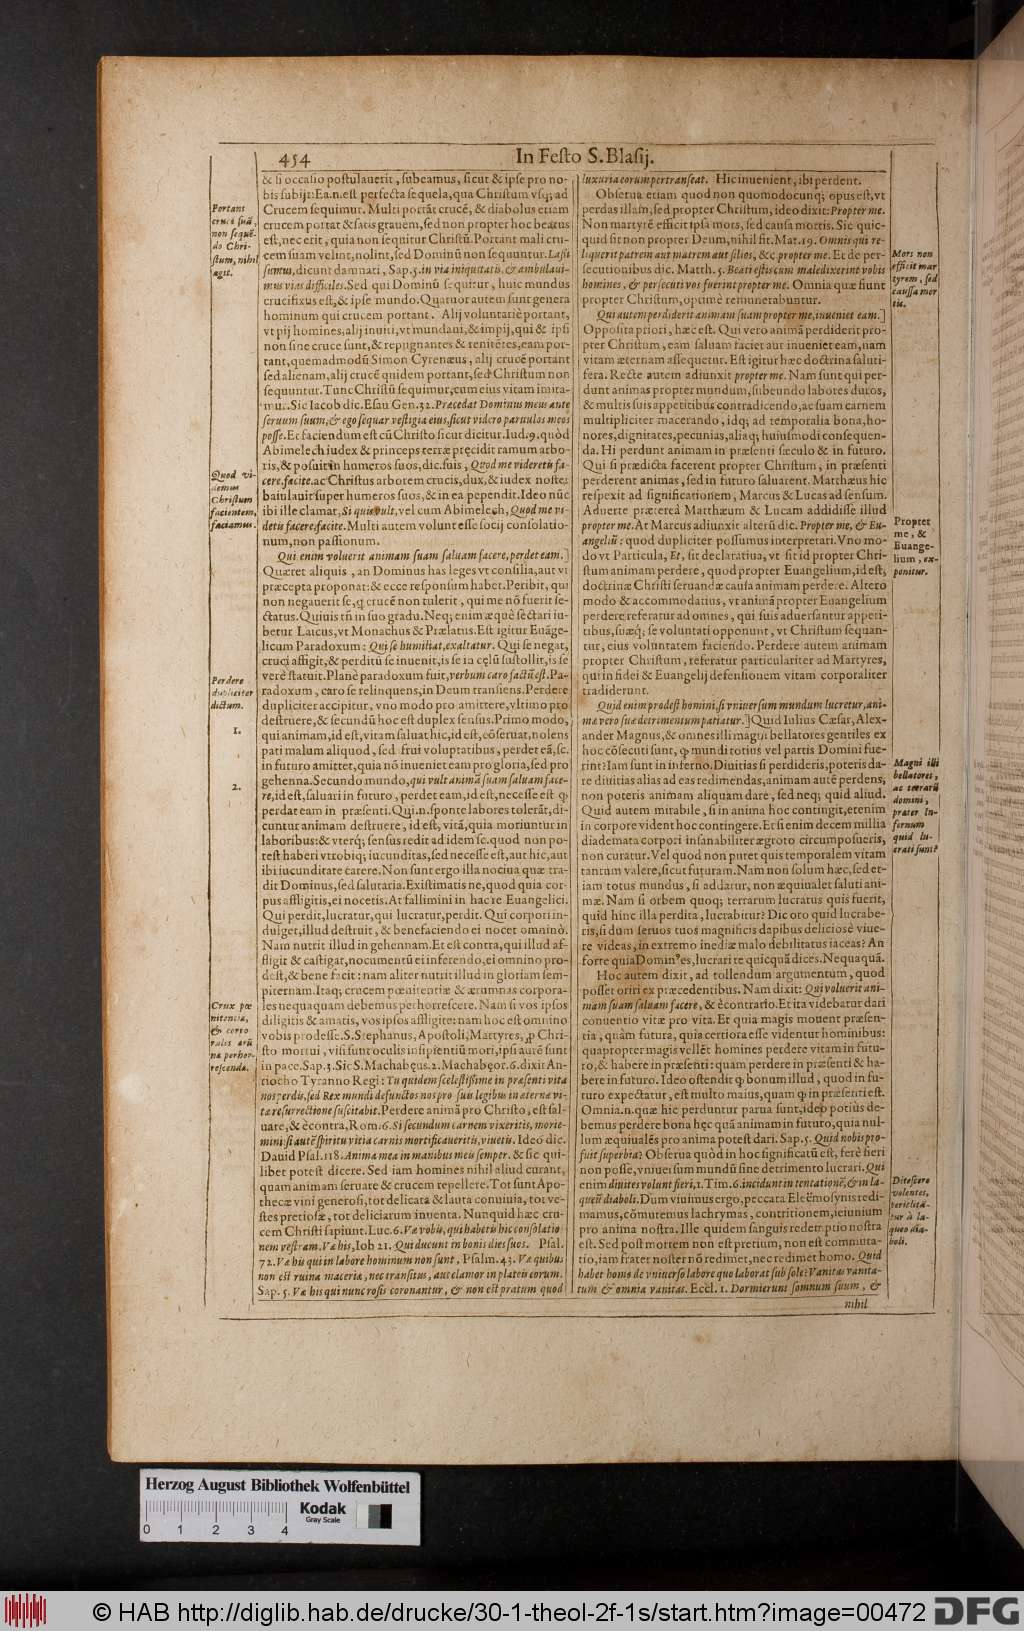 454
In Festo S. Blasij.
& si occasio postulauerit, subeamus, sicut & ipse pro no-
bis subijt: Ea.n.est perfecta sequela, qua Christum vsq; ad
Crucem sequimur. Multi portāt crucē, & diabolus etiam
crucem portat & satis grauem, sed non propter hoc beatus
est, nec erit, quia non sequitur Christū. Portant mali cru-
cem suam velint, nolint, sed Dominū non sequuntur. Lassi
sumus, dicunt damnati, Sap. 5. in via iniquitatis, & ambulaui-
mus vias difficiles. Sed qui Dominū sequitur, huic mundus
crucifixus est, & ipse mundo. Quatuor autem sunt genera
hominum qui crucem portant. Alij voluntariè portant,
vt pij homines, alij inuiti, vt mundani, & impij, qui & ipsi
non sine cruce sunt, & repugnantes & renitētes, eam por-
tant, quemadmodū Simon Cyrenæus, alij crucē portant
sed alienam, alij crucē quidem portant, sed Christum non
sequuntur. Tunc Christū sequimur, cum eius vitam imita-
mur. Sic Iacob dic. Esau Gen. 32. Præcedat Dominus meus ante
seruum suum, & ego sequar vestigia eius, sicut videro paruulos meos
posse. Et faciendum est cū Christo sicut dicitur. Iud. 9. quòd
Abimelech iudex & princeps terræ præcidit ramum arbo-
ris, & posuit in humeros suos, dic. suis, Quod me videretis fa-
cere, facite. ac Christus arborem crucis, dux, & iudex noster
baiulauit super humeros suos, & in ea pependit. Ideo nūc
ibi ille clamat, Si quis vult, vel cum Abimelech, Quod me vi-
detis facere, facite. Multi autem volunt esse socij consolatio-
num, non passionum.
Qui enim voluerit animam suam saluam facere, perdet eam.]
Quæret aliquis, an Dominus has leges vt consilia, aut vt
præcepta proponat: & ecce responsum habet. Peribit, qui
non negauerit se, q crucē non tulerit, qui me nō fuerit se-
ctatus. Quiuis tñ in suo gradu. Neq; enim æquè sectari iu-
betur Laicus, vt Monachus & Prælatus. Est igitur Euāge-
licum Paradoxum: Qui se humiliat, exaltatur. Qui se negat,
cruci affigit, & perditū se inuenit, is se in cęlū sustollit, is se
verè statuit. Planè paradoxum fuit, verbum caro factū est. Pa-
radoxum, caro se relinquens, in Deum transiens. Perdere
dupliciter accipitur, vno modo pro amittere, vltimo pro
destruere, & secundū hoc est duplex sensus. Primo modo,
qui animam, id est, vitam saluat hic, id est, cōseruat, nolens
pati malum aliquod, sed frui voluptatibus, perdet eā, sc.
in futuro amittet, quia nō inueniet eam pro gloria, sed pro
gehenna. Secundo mundo, qui vult animā suam saluam face-
re, id est, saluari in futuro, perdet eam, id est, necesse est q
perdat eam in præsenti. Qui.n. sponte labores tolerāt, di-
cuntur animam destruere, id est, vitā, quia moriuntur in
laboribus: & vterq; sensus redit ad idem sc. quod non po-
test haberi vtrobiq; iucunditas, sed necesse est, aut hic, aut
ibi iucunditate carere. Non sunt ergo illa nociua quæ tra-
dit Dominus, sed salutaria. Existimatis ne, quod quia cor-
pus affligitis, ei nocetis. At fallimini in hac re Euangelici.
Qui perdit, lucratur, qui lucratur, perdit. Qui corpori in-
dulget, illud destruit, & benefaciendo ei nocet omninò.
Nam nutrit illud in gehennam. Et est contra, qui illud af-
fligit & castigat, nocumentū ei inferendo, ei omnino pro-
dest, & bene facit: nam aliter nutrit illud in gloriam sem-
piternam. Itaq; crucem pœnitentiæ & ærumnas corpora-
les nequaquam debemus perhorrescere. Nam si vos ipsos
diligitis & amatis, vos ipsos affligite: nam hoc est omnino
vobis prodesse. S. Stephanus, Apostoli, Martyres, p Chri-
sto mortui, visi sunt oculis insipientiū mori, ipsi autē sunt
in pace. Sap. 3. Sic S. Machabęus. 2. Machabęor. 6. dixit An-
tiocho Tyranno Regi: Tu quidem scelestissime in præsenti vita
nos perdis, sed Rex mundi defunctos nos pro suis legibus in æterna vi-
tæ resurrectione suscitabit. Perdere animā pro Christo, est sal-
uare, & ècontra, Rom. 6. Si secundum carnem vixeritis, morie-
mini: si autē spiritu vitia carnis mortificaueritis, viuetis. Ideò dic.
Dauid Psal. 118. Anima mea in manibus meis semper. & sic qui-
libet potest dicere. Sed iam homines nihil aliud curant,
quam animam seruare & crucem repellere. Tot sunt Apo-
thecæ vini generosi, tot delicata & lauta conuiuia, tot ve-
stes pretiosæ, tot deliciarum inuenta. Nunquid hæc cru-
cem Christi sapiunt. Luc. 6. Væ vobis, qui habetis hic consolatio
nem vestram. Væ his, Iob 21. Qui ducunt in bonis dies suos. Psal.
72. Væ his qui in labore hominum non sunt, Psalm. 43. Væ quibus
non est ruina maceriæ, nec transitus, aut clamor in plateis eorum.
Sap. 5. Væ his qui nunc rosis coronantur, & non est pratum quod
luxuria eorum pertranseat. Hic inuenient, ibi perdent.
Obserua etiam quod non quomodocunq; opus est, vt
perdas illam, sed propter Christum, ideo dixit: Propter me.
Non martyrē efficit ipsa mors, sed causa mortis. Sic quic-
quid fit non propter Deum, nihil fit. Mat. 19. Omnis qui re-
liquerit patrem aut matrem aut filios, &c propter me. Et de per-
secutionibus dic. Matth. 5. Beati estis cum maledixerint vobis
homines, & persecuti vos fuerint propter me. Omnia quæ fiunt
propter Christum, optimè remunerabuntur.
Qui autem perdiderit animam suam propter me, inueniet eam.]
Opposita priori, hæc est. Qui vero animā perdiderit pro-
pter Christum, eam saluam faciet aut inueniet eam, nam
vitam æternam assequetur. Est igitur hæc doctrina saluti-
fera. Recte autem adiunxit propter me. Nam sunt qui per-
dunt animas propter mundum, subeundo labores duros,
& multis suis appetitibus contradicendo, ac suam carnem
multipliciter macerando, idq; ad temporalia bona, ho-
nores, dignitates, pecunias, aliaq; huiusmodi consequen-
da. Hi perdunt animam in præsenti sæculo & in futuro.
Qui si prædicta facerent propter Christum, in præsenti
perderent animas, sed in futuro saluarent. Matthæus hic
respexit ad significationem, Marcus & Lucas ad sensum.
Aduerte prætereà Matthæum & Lucam addidisse illud
propter me. At Marcus adiunxit alterū dic. Propter me, & Eu-
angeliū: quod dupliciter possumus interpretari. Vno mo-
do vt Particula, Et, sit declaratiua, vt sit id propter Chri-
stum animam perdere, quod propter Euangelium, id est,
doctrinæ Christi seruandæ causa animam perdere. Altero
modo & accommodatius, vt animā propter Euangelium
perdere referatur ad omnes, qui suis aduersantur appeti-
tibus, suæq; se voluntati opponunt, vt Christum sequan-
tur, eius voluntatem faciendo. Perdere autem animam
propter Christum, referatur particulariter ad Martyres,
qui in fidei & Euangelij defensionem vitam corporaliter
tradiderunt.
Quid enim prodest homini, si vniuersum mundum lucretur, ani-
mæ vero suæ detrimentum patiatur.] Quid Iulius Cæsar, Alex-
ander Magnus, & omnes illi magni bellatores gentiles ex
hoc cōsecuti sunt, q mundi totius vel partis Domini fue-
rint? Iam sunt in inferno. Diuitias si perdideris, poteris da-
re diuitias alias ad eas redimendas, animam autē perdens,
non poteris animam aliquam dare, sed neq; quid aliud.
Quid autem mirabile, si in anima hoc contingit, etenim
in corpore vident hoc contingere. Et si enim decem millia
diademata corpori insanabiliter ægroto circumposueris,
non curatur. Vel quod non putet quis temporalem vitam
tantum valere, sicut futuram. Nam non solum hæc, sed et-
iam totus mundus, si addatur, non æquiualet saluti ani-
mæ. Nam si orbem quoq; terrarum lucratus quis fuerit,
quid hinc illa perdita, lucrabitur? Dic oro quid lucrabe-
ris, si dum seruos tuos magnificis dapibus deliciosè viue-
re videas, in extremo inediæ malo debilitatus iaceas? An
forte quia Domin⁹ es, lucrari te quicquā dices. Nequaquā.
Hoc autem dixit, ad tollendum argumentum, quod
posset oriri ex præcedentibus. Nam dixit: Qui voluerit ani-
mam suam saluam facere, & ècontrario. Et ita videbatur dari
conuentio vitæ pro vita. Et quia magis mouent præsen-
tia, quàm futura, quia certiora esse videntur hominibus:
quapropter magis vellēt homines perdere vitam in futu-
ro, & habere in præsenti: quam perdere in præsenti & ha-
bere in futuro. Ideo ostendit q bonum illud, quod in fu-
turo expectatur, est multo maius, quam q in præsenti est.
Omnia.n. quæ hic perduntur parua sunt, ideo potius de-
bemus perdere bona hęc quā animam in futuro, quia nul-
lum æquiualēs pro anima potest dari. Sap. 5. Quid nobis pro-
fuit superbia? Obserua quòd in hoc significatū est, ferè fieri
non posse, vniuersum mundū sine detrimento lucrari. Qui
enim diuites volunt fieri, 1. Tim. 6. incidunt in tentationē, & in la-
queū diaboli. Dum viuimus ergo, peccata Eleēmosynis redi-
mamus, cōmutemus lachrymas, contritionem, ieiunium
pro anima nostra. Ille quidem sanguis redemptio nostra
est. Sed post mortem non est pretium, non est commuta-
tio, iam frater noster nō redimet, nec redimet homo. Quid
habet homo de vniuerso labore quo laborat sub sole: Vanitas vanita-
tum & omnia vanitas. Eccl. 1. Dormierunt somnum suum, &
nihil
Portant
crucē suā,
non sequē-
do Chri-
stum, nihil
agit.
Quod vi-
demus
Christum
facientem,
faciamus.
Perdere
dupliciter
dictum.
1.
2.
Crux pœ
nitentiæ,
& corpo
ralis ærū
na perhor-
rescenda.
Mors non
efficit mar
tyrem, sed
caussa mor
tis.
Propter
me, &
Euange-
lium, ex-
ponitur.
Magni illi
bellatores,
ac terrarū
domini,
præter In-
fernum
quid lu-
crati sunt?
Ditescere
volentes,
periclitā-
tur à la-
queo dia-
boli.
Herzog August Bibliothek Wolfenbüttel
0 1 2 3 4
Kodak
Gray Scale
© HAB http://diglib.hab.de/drucke/30-1-theol-2f-1s/start.htm?image=00472
DFG